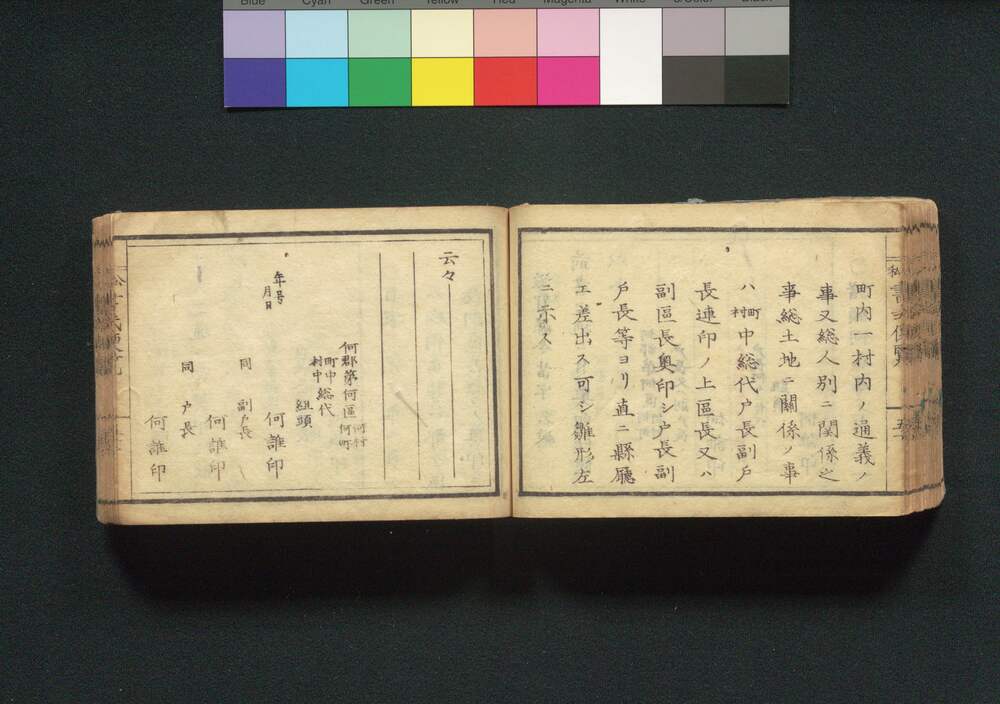 Blue Cyan Green Yellow Red Magenta White 3/Color Black
町内一村内ノ通義ノ
事又総人別ニ関係之
事総土地ニ關係ノ事
ハ町村中総代戸長副戸
長連印ノ上區長又ハ
副區長奥印シ戸長副
戸長等ヨリ直ニ縣廳
エ差出ス可シ雛形左
ニ示ス
云々
何郡第何區何村何町
町中村中総代
組頭
年号月日
何誰印
同 副戸長
何誰印
同 戸長
何誰印